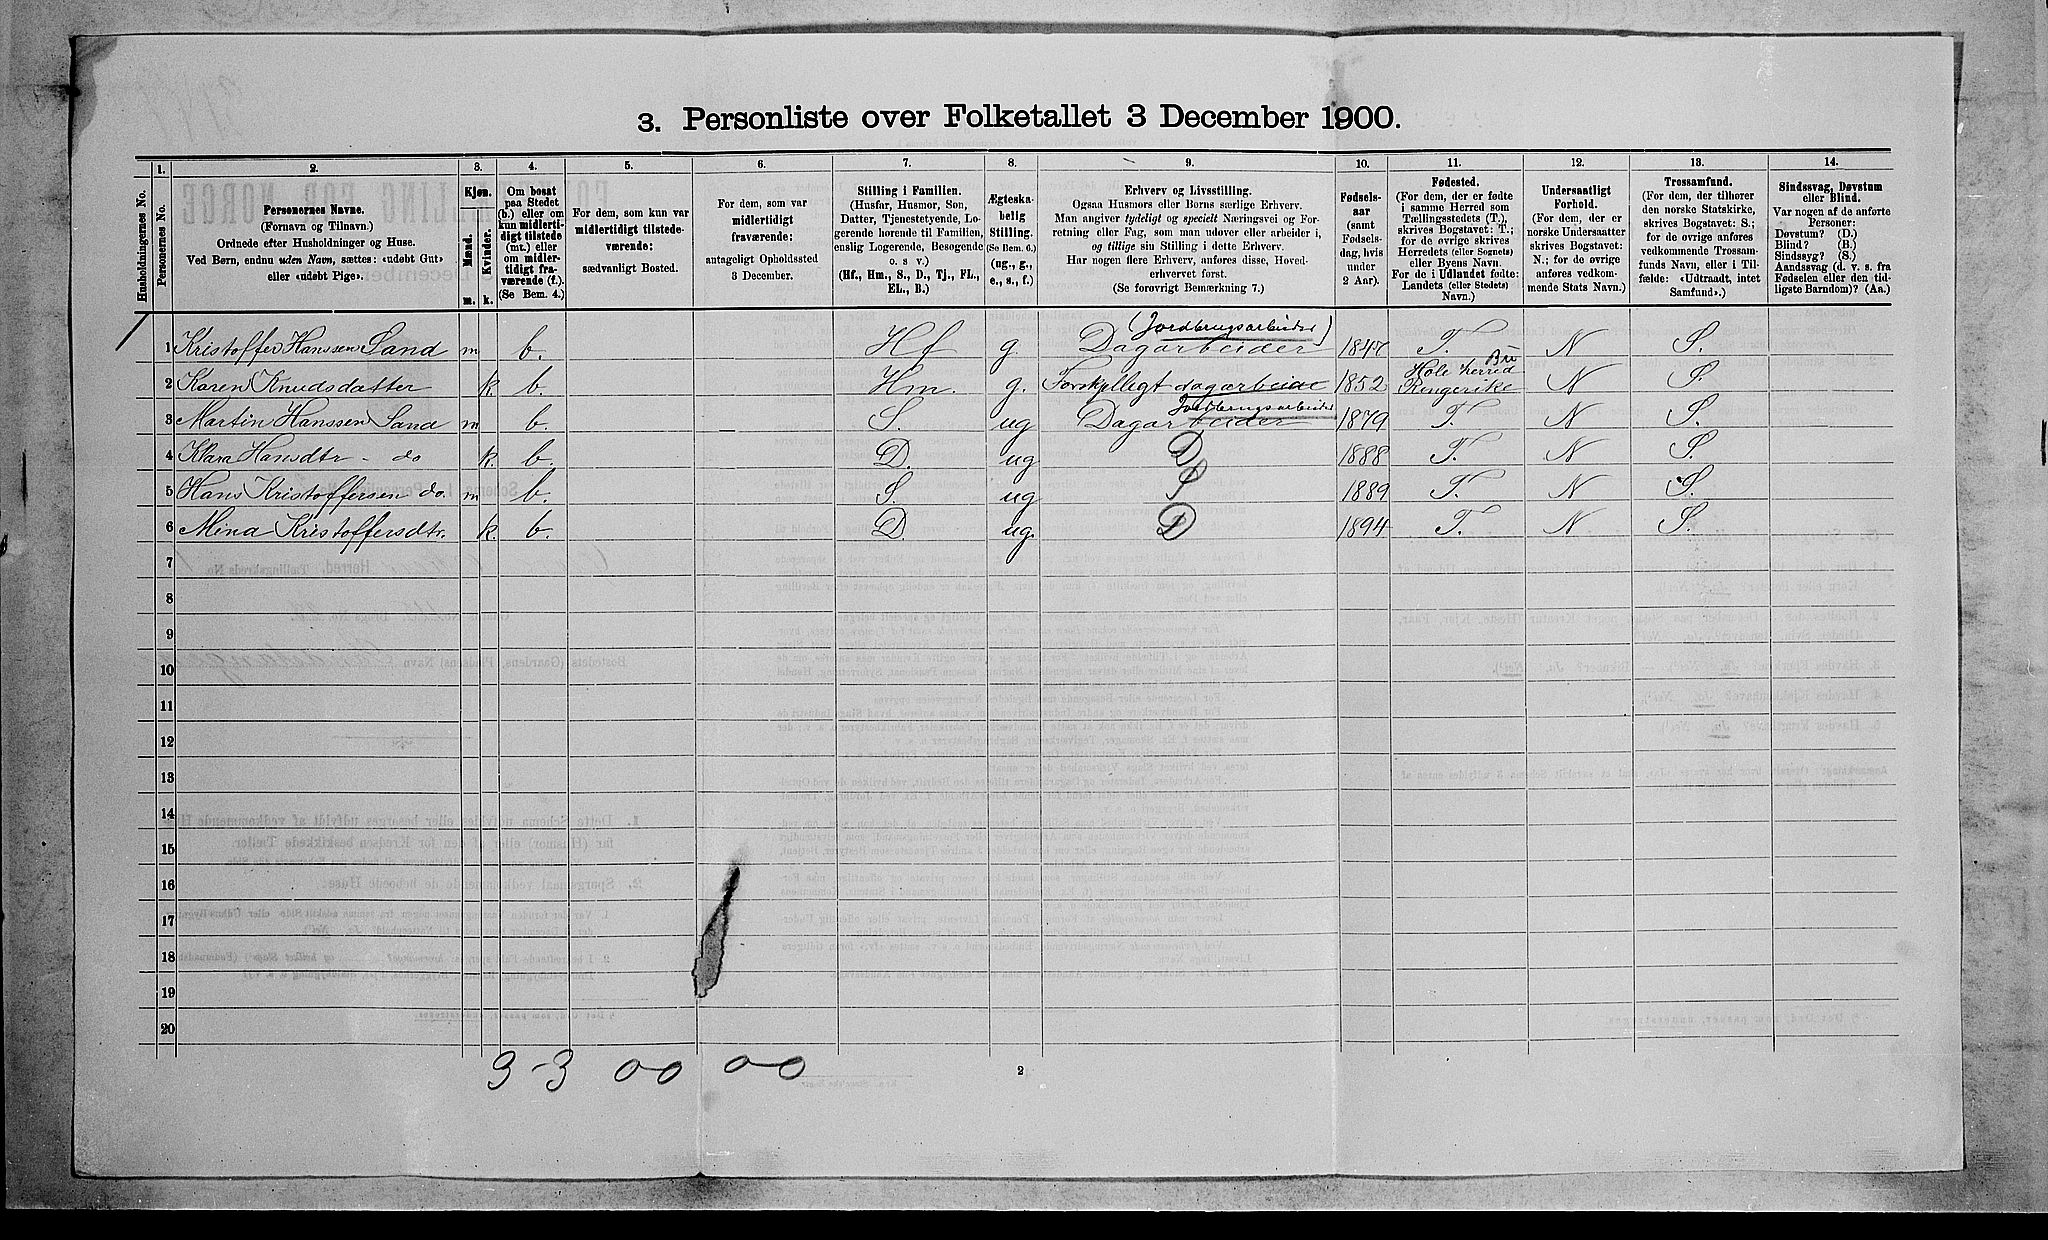 3. Personliste over Folketallet 3 December 1900.
1. 2. 3. 4. 5. 6. 7. 8. 9. 10. 11. 12. 13. 14.
Husholdningernes No.
Personernes No.
Personernes Navne.
(Fornavn og Tilnavn.)
Ordnede efter Husholdninger og Huse.
Ved Børn, endnu uden Navn, sættes: «udøbt Gut»
eller «udøbt Pige».
Kjøn.
Mænd.
Kvinder.
m. k.
Om bosat
paa Stedet
(b.) eller om
kun midlerti-
digt tilstede
(mt.) eller
om midler-
tidigt fra-
værende (f.).
(Se Bem. 4.)
For dem, som kun var
midlertidigt tilstede-
værende:
sædvanligt Bosted.
For dem, som var
midlertidigt
fraværende:
antageligt Opholdssted
3 December.
Stilling i Familien.
(Husfar, Husmor, Søn,
Datter, Tjenestetyende, Lo-
gerende hørende til Familien,
enslig Logerende, Besøgende
o. s v.)
(Hf., Hm., S., D., Tj., FL.,
EL., B.)
Ægteska-
belig
Stilling.
(Se Bem. 6.)
(ug., g.,
e., s., f.)
Erhverv og Livsstilling.
Ogsaa Husmors eller Børns særlige Erhverv.
Man angiver tydeligt og specielt Næringsvei og For-
retning eller Fag, som man udøver eller arbeider i,
og tillige sin Stilling i dette Erhverv.
Har nogen flere Erhverv, anføres disse, Hoved-
erhvervet først.
(Se forøvrigt Bemærkning 7.)
Fødsels-
aar
(samt
Fødsels-
dag, hvis
under
2 Aar).
Fødested.
(For dem, der er fødte
i samme Herred som
Tællingsstedets (T.),
skrives Bogstavet: T.;
for de øvrige skrives
Herredets (eller Sognets)
eller Byens Navn.
For de i Udlandet fødte:
Landets (eller Stedets)
Navn.)
Undersaatligt
Forhold.
(For dem, der er
norske Undersaatter
skrives Bogstavet:
N.; for de øvrige
anføres vedkom-
mende Stats Navn.)
Trossamfund.
(For dem, der tilhører
den norske Statskirke,
skrives Bogstavet: S.;
for de øvrige anføres
vedkommende Trossam-
funds Navn, eller i Til-
fælde: «Udtraadt, intet
Samfund».)
Sindssvag, Døvstum
eller Blind.
Var nogen af de anførte
Personer:
Døvstum? (D.)
Blind? (B.)
Sindssyg? (S.)
Aandssvag (d. v. s. fra
Fødselen eller den tid-
ligste Barndom)? (Aa.)
(Jordbrugsarbeider)
1 Kristoffer Hanssen Sand m b. Hf g. Dagarbeider 1847 T. N S.
Bu
Hole herred
2 Karen Knudsdatter k. b. Hm. g. Forskjelligt dagarbeide 1852 Ringerike N S.
Jordbrugsarbeider
3 Martin Hanssen Sand m b. S. ug Dagarbeider 1879 T. N S.
4 Klara Hansdtr - do k. b. D. ug D 1888 T. N S
5 Hans Kristoffersen do. m b. S. ug S 1889 T. N S.
6 Mina Kristoffersdtr. k. b. D. ug. D 1894 T. N S.
7
8
9
10
11
12
13
14
15
16
17
18
19
20
3-3 00 00
2